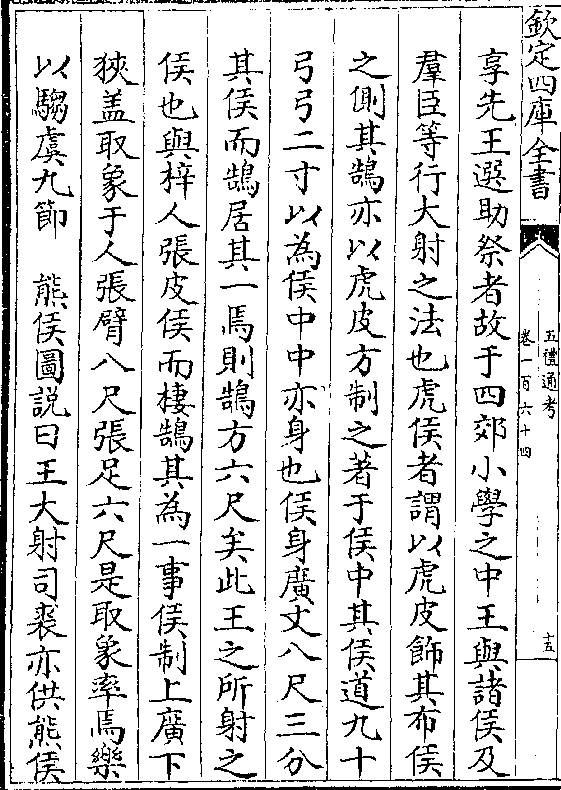 欽定四庫全書
五禮通考
卷一百六十四
十五
享先王選助祭者故于四郊小學之中王與諸侯及
羣臣等行大射之法也虎侯者謂以虎皮飾其布侯
之側其鵠亦以虎皮方制之著于侯中其侯道九十
弓弓二寸以為侯中中亦身也侯身廣丈八尺三分
其侯而鵠居其一焉則鵠方六尺矣此王之所射之
侯也與梓人張皮侯而棲鵠其為一事侯制上廣下
狹盖取象于人張臂八尺張足六尺是取象率焉樂
以騶虞九節　熊侯圖説曰王大射司裘亦供熊侯